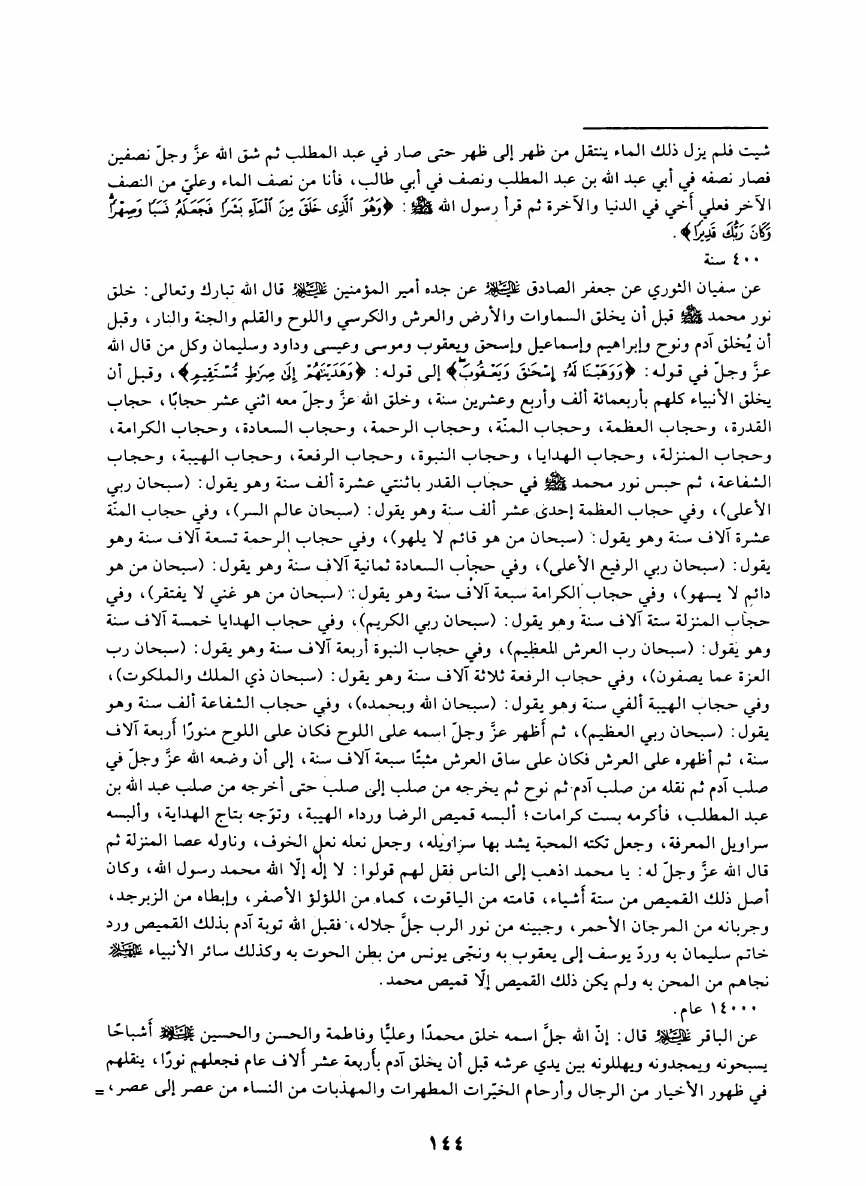 شيت فلم يزل ذلك الماء ينتقل من ظهر إلى ظهر حتى صار في عبد المطلب ثم شق الله عزَّ وجلّ نصفين
فصار نصفه في أبي عبد الله بن عبد المطلب ونصف في أبي طالب، فأنا من نصف الماء وعليّ من النصف
الآخر فعلي أخي في الدنيا والآخرة ثم قرأ رسول الله ﷺ : ﴿وَهُوَ ٱلَّذِى خَلَقَ مِنَ ٱلْمَآءِ بَشَرًا فَجَعَلَهُۥ نَسَبًا وَصِهْرًا ۗ
وَكَانَ رَبُّكَ قَدِيرًا﴾.
٤٠٠ سنة
عن سفيان الثوري عن جعفر الصادق عليه السلام عن جده أمير المؤمنين عليه السلام قال الله تبارك وتعالى: خلق
نور محمد ﷺ قبل أن يخلق السماوات والأرض والعرش والكرسي واللوح والقلم والجنة والنار، وقبل
أن يُخلق آدم ونوح وإبراهيم وإسماعيل وإسحق ويعقوب وموسى وعيسى وداود وسليمان وكل من قال الله
عزَّ وجلّ في قوله: ﴿وَوَهَبْنَا لَهُۥ إِسْحَٰقَ وَيَعْقُوبَ ۚ﴾ إلى قوله: ﴿وَهَدَيْنَٰهُمْ إِلَىٰ صِرَٰطٍ مُّسْتَقِيمٍ﴾، وقبل أن
يخلق الأنبياء كلهم بأربعمائة ألف وأربع وعشرين سنة، وخلق الله عزَّ وجلّ معه اثني عشر حجابًا، حجاب
القدرة، وحجاب العظمة، وحجاب المنّة، وحجاب الرحمة، وحجاب السعادة، وحجاب الكرامة،
وحجاب المنزلة، وحجاب الهدايا، وحجاب النبوة، وحجاب الرفعة، وحجاب الهيبة، وحجاب
الشفاعة، ثم حبس نور محمد ﷺ في حجاب القدر باثنتي عشرة ألف سنة وهو يقول: (سبحان ربي
الأعلى)، وفي حجاب العظمة إحدى عشر ألف سنة وهو يقول: (سبحان عالم السر)، وفي حجاب المنّة
عشرة آلاف سنة وهو يقول: (سبحان من هو قائم لا يلهو)، وفي حجاب الرحمة تسعة آلاف سنة وهو
يقول: (سبحان ربي الرفيع الأعلى)، وفي حجاب السعادة ثمانية آلاف سنة وهو يقول: (سبحان من هو
دائم لا يسهو)، وفي حجاب الكرامة سبعة آلاف سنة وهو يقول: (سبحان من هو غني لا يفتقر)، وفي
حجاب المنزلة ستة آلاف سنة وهو يقول: (سبحان ربي الكريم)، وفي حجاب الهدايا خمسة آلاف سنة
وهو يقول: (سبحان رب العرش المعظيم)، وفي حجاب النبوة أربعة آلاف سنة وهو يقول: (سبحان رب
العزة عما يصفون)، وفي حجاب الرفعة ثلاثة آلاف سنة وهو يقول: (سبحان ذي الملك والملكوت)،
وفي حجاب الهيبة ألفي سنة وهو يقول: (سبحان الله وبحمده)، وفي حجاب الشفاعة ألف سنة وهو
يقول: (سبحان ربي العظيم)، ثم أظهر عزَّ وجلّ اسمه على اللوح فكان على اللوح منورًا أربعة آلاف
سنة، ثم أظهره على العرش فكان على ساق العرش مثبتًا سبعة آلاف سنة، إلى أن وضعه الله عزَّ وجلّ في
صلب آدم ثم نقله من صلب آدم ثم نوح ثم يخرجه من صلب إلى صلب حتى أخرجه من صلب عبد الله بن
عبد المطلب، فأكرمه بست كرامات؛ ألبسه قميص الرضا ورداء الهيبة، وتوّجه بتاج الهداية، وألبسه
سراويل المعرفة، وجعل تكته المحبة يشد بها سراويله، وجعل نعله نعل الخوف، وناوله عصا المنزلة ثم
قال الله عزَّ وجلّ له: يا محمد اذهب إلى الناس فقل لهم قولوا: لا إلٰه إلّا الله محمد رسول الله، وكان
أصل ذلك القميص من ستة أشياء، قامته من الياقوت، كماه من اللؤلؤ الأصفر، وإبطاه من الزبرجد،
وجربانه من المرجان الأحمر، وجبينه من نور الرب جلَّ جلاله، فقبل الله توبة آدم بذلك القميص ورد
خاتم سليمان به وردّ يوسف إلى يعقوب به ونجّى يونس من بطن الحوت به وكذلك سائر الأنبياء عليهم السلام
نجاهم من المحن به ولم يكن ذلك القميص إلّا قميص محمد.
١٤٠٠٠ عام.
عن الباقر عليه السلام قال: إنّ الله جلَّ اسمه خلق محمدًا وعليًّا وفاطمة والحسن والحسين عليهم السلام أشباحًا
يسبحونه ويمجدونه ويهللونه بين يدي عرشه قبل أن يخلق آدم بأربعة عشر ألاف عام فجعلهم نورًا، ينقلهم
في ظهور الأخيار من الرجال وأرحام الخيّرات المطهرات والمهذبات من النساء من عصر إلى عصر، =
١٤٤